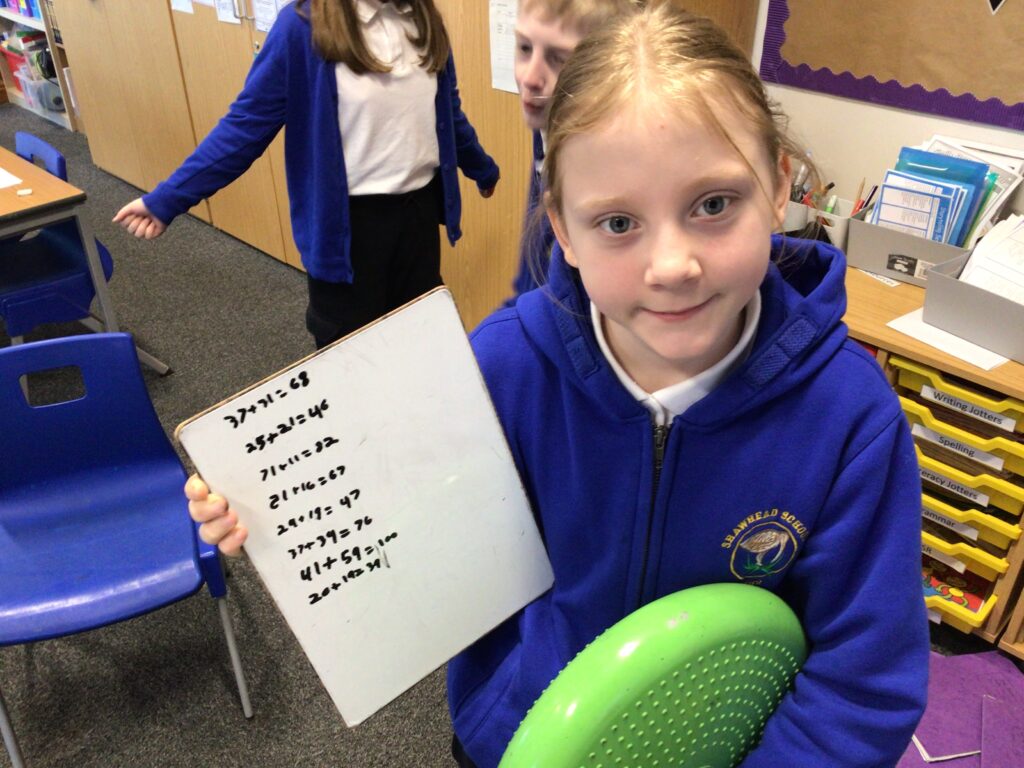 37+31=68
25+21=46
71+11=82
29+18= 47
37+39=76
41+59=100
20+19=39
SHAWHEAD SCHOOL
Writing Jotters
Spelling
Jotters